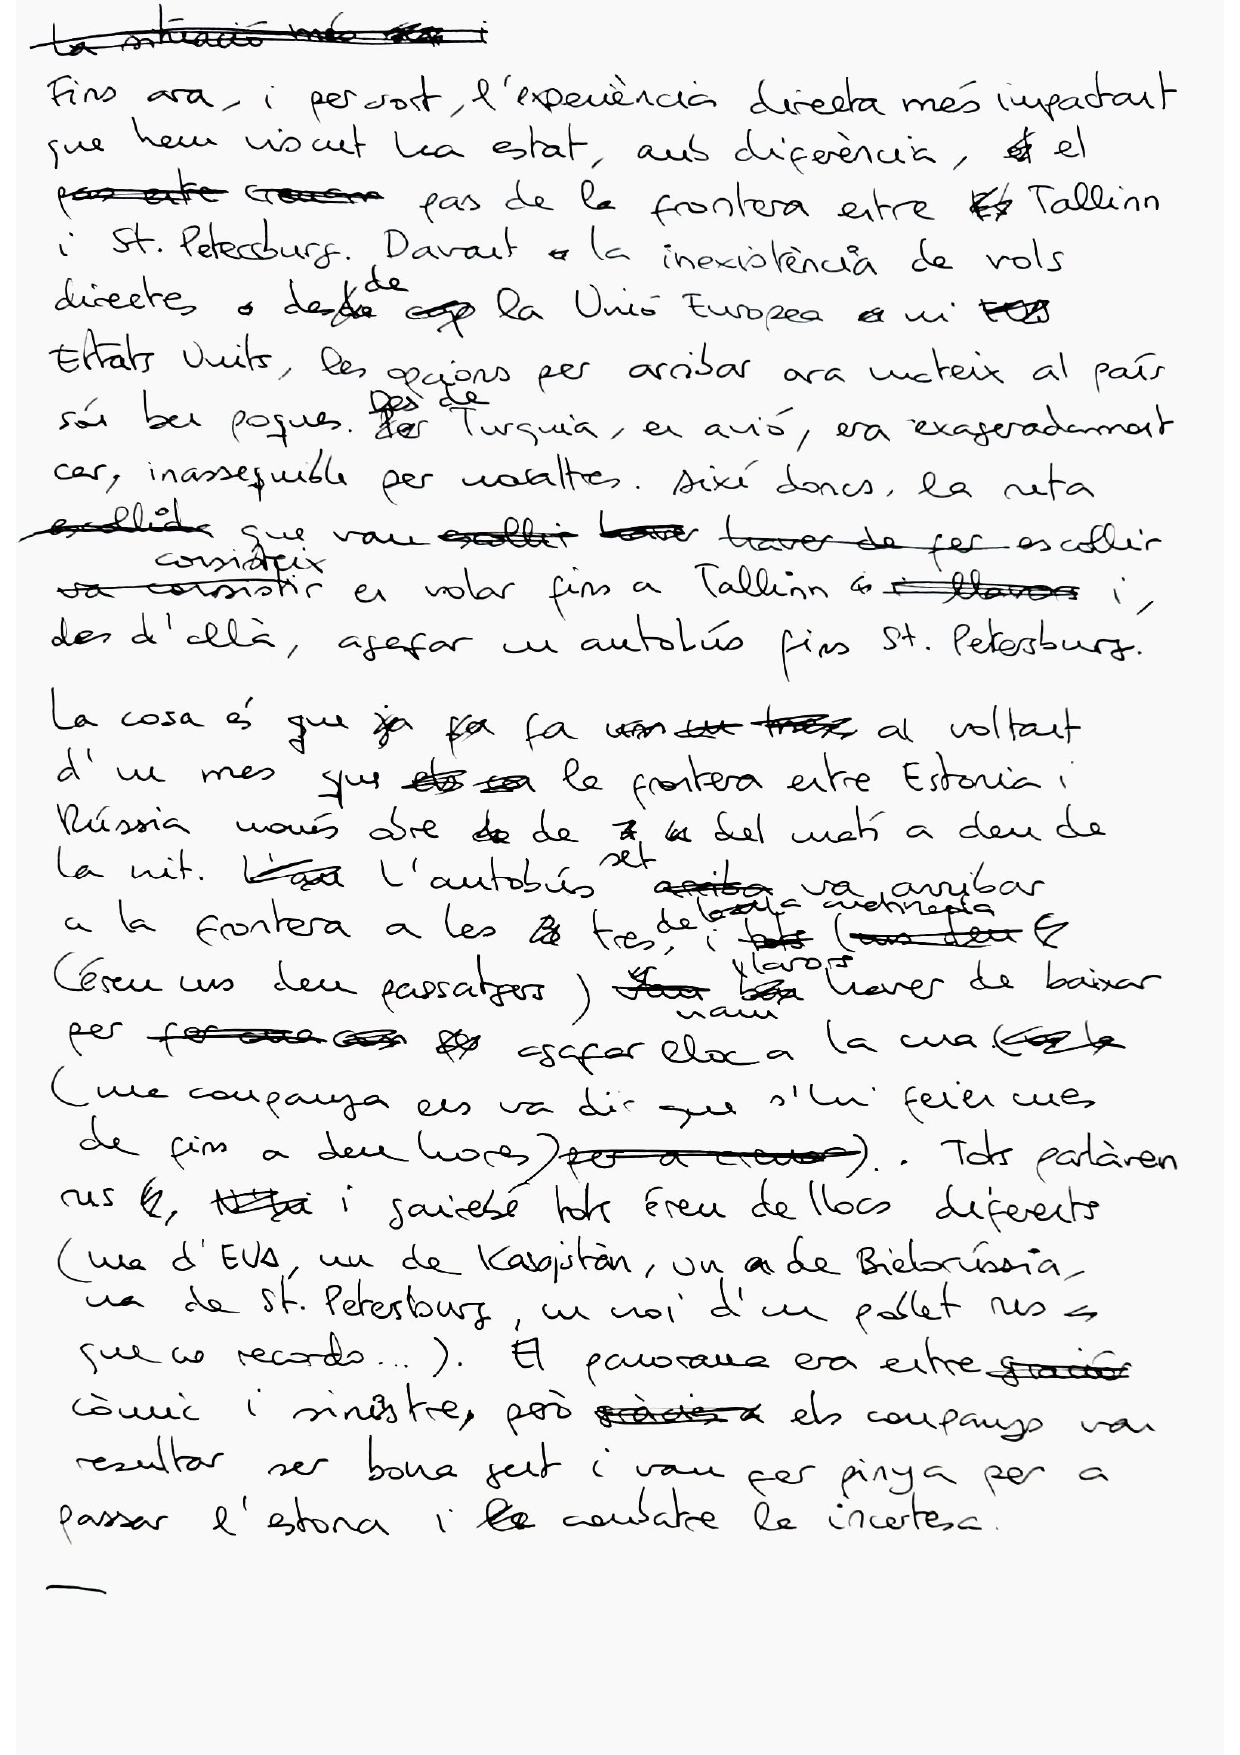 La situació més i
Fins ara, i per sort, l'experiència directa més impactant
que hem viscut ha estat, amb diferència, el
pas entre pas de la frontera entre Tallinn
i St. Petersburg. Davant la inexistència de vols
directes des de la Unió Europea ni
Estats Units, les opcions per arribar ara mateix al país
són ben poques. Des de Turquia, en avió, era exageradament
car, inassequible per nosaltres. Així doncs, la ruta
escollida que vam escollir haver haver de fer escollir
consisteix
va consistir en volar fins a Tallinn i llavors i,
des d'allà, agafar un autobús fins St. Petersburg.
La cosa és que ja fa al voltant
d'un mes que la frontera entre Estonia i
Rússia només obre de set del matí a deu de
la nit. L'autobús arriba va arribar
a la frontera a les tres de la matinada, i tots (uns deu
(érem uns deu passatgers) llavors vam haver de baixar
per fer una agafar lloc a la cua
(una companya ens va dir que s'hi feien cues
de fins a deu hores) per a creuar). Tots parlàvem
rus, i gairebé tots érem de llocs diferents
(una d'EUA, un de Kasajstàn, un de Bielorússia,
una de St. Petersburg, un noi d'un poblet rus
que no recordo...). El panorama era entre graciós
còmic i sinistre, però gràcies a els companys van
resultar ser bona gent i vam fer pinya per a
passar l'estona i combatre la incertesa.